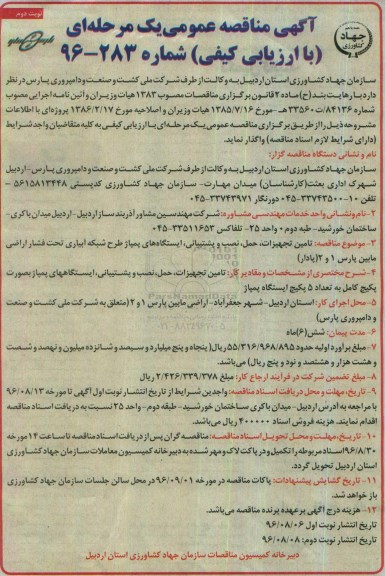 نوبت دوم
جهاد کشاورزی
آگهی مناقصه عمومی یک مرحله‌ای
(با ارزیابی کیفی) شماره ۲۸۳-۹۶
سازمان جهاد کشاورزی استان اردبیل به وکالت از طرف شرکت ملی کشت و صنعت و دامپروری پارس در نظر
دارد با رعایت بند (ح) ماده ۲ قانون برگزاری مناقصات مصوب ۱۳۸۳ هیات وزیران و آئین نامه اجرایی مصوب
شماره ۸۴۱۳۶/ت ۳۳۵۶۰ هـ -مورخ ۱۳۸۵/۷/۱۶ هیات وزیران و اصلاحیه مورخ ۱۳۸۶/۲/۱۷ پروژه‌ای با اطلاعات
مشروحه ذیل را از طریق برگزاری مناقصه عمومی یک مرحله‌ای با ارزیابی کیفی به کلیه متقاضیان واجد شرایط
(دارای شرایط لازم اسناد مناقصه) واگذار نماید.
نام و نشانی دستگاه مناقصه گزار:
سازمان جهاد کشاورزی استان اردبیل به وکالت از طرف شرکت ملی کشت و صنعت و دامپروری پارس-اردبیل
شهرک اداری بعثت(کارشناسان) میدان مهارت- سازمان جهاد کشاورزی کدپستی ۵۶۱۵۸۱۳۴۴۸ -
تلفن ۱۰-۳۳۷۴۳۵۰۰-۰۴۵ دورنگار ۳۳۷۴۳۹۷۱-۰۴۵
۲-نام ونشانی واحد خدمات مهندسی مشاوره: شرکت مهندسین مشاور آذربند ساز اردبیل- اردبیل میدان باکری-
ساختمان خورشید- طبقه دوم - واحد ۲۵- تلفاکس ۳۳۵۱۱۶۵۳-۰۴۵
۳- موضوع مناقصه: تامین تجهیزات، حمل، نصب و پشتیبانی، ایستگاه‌های پمپاژ طرح شبکه آبیاری تحت فشار اراضی
مابین پارس ۱ و ۲(پادار)
۴- شرح مختصری از مشخصات و مقادیر کار: تامین تجهیزات، حمل، نصب و پشتیبانی، ایستگاههای پمپاژ بصورت
پکیج کامل به تعداد ۵ پکیج ایستگاه پمپاژ
۵- محل اجرای کار: استان اردبیل-شهر جعفرآباد- اراضی مابین پارس ۱ و ۲(متعلق به شرکت ملی کشت و صنعت
و دامپروری پارس)
۶- مدت پیمان: شش(۶)ماه
۷- مبلغ برآورد اولیه حدود ۵۵/۳۱۶/۹۶۸/۸۹۵ ریال( پنجاه و پنج میلیارد و سیصد و شانزده میلیون و نهصد و شصت
و هشت هزار و هشتصد و نود و پنج ریال) می‌باشد.
۸- مبلغ تضمین شرکت در فرآیند ارجاع کار: مبلغ ۲/۴۲۶/۳۳۹/۳۷۸ ریال
۹- تاریخ، مهلت و محل دریافت اسناد مناقصه: واجدین شرایط از تاریخ انتشار نوبت اول آگهی تا مورخه ۹۶/۰۸/۱۳
با مراجعه به آدرس اردبیل- میدان باکری ساختمان خورشید- طبقه دوم- واحد ۲۵ نسبت به دریافت اسناد مناقصه
اقدام نمایند. هزینه فروش اسناد ۴۰۰۰۰۰ ریال می‌باشد.
۱۰- تاریخ، مهلت و محل تحویل اسناد مناقصه: مناقصه گران پس از دریافت اسناد مناقصه تا ساعت ۱۴ مورخه
۹۶/۸/۳۰ اسناد مربوطه را تکمیل و در پاکت لاک و مهر شده به دبیرخانه کمیسیون معاملات سازمان جهاد کشاورزی
استان اردبیل تحویل گردد.
۱۱- تاریخ گشایش پیشنهادات: پاکات مناقصه در مورخه ۹۶/۰۹/۰۱ در محل سالن جلسات سازمان جهاد کشاورزی
باز خواهد شد.
۱۲- هزینه درج آگهی بر عهده برنده مناقصه می‌باشد.
تاریخ انتشار نوبت اول ۹۶/۰۸/۰۶
تاریخ انتشار نوبت دوم: ۹۶/۰۸/۰۸
دبیرخانه کمیسیون مناقصات سازمان جهاد کشاورزی استان اردبیل